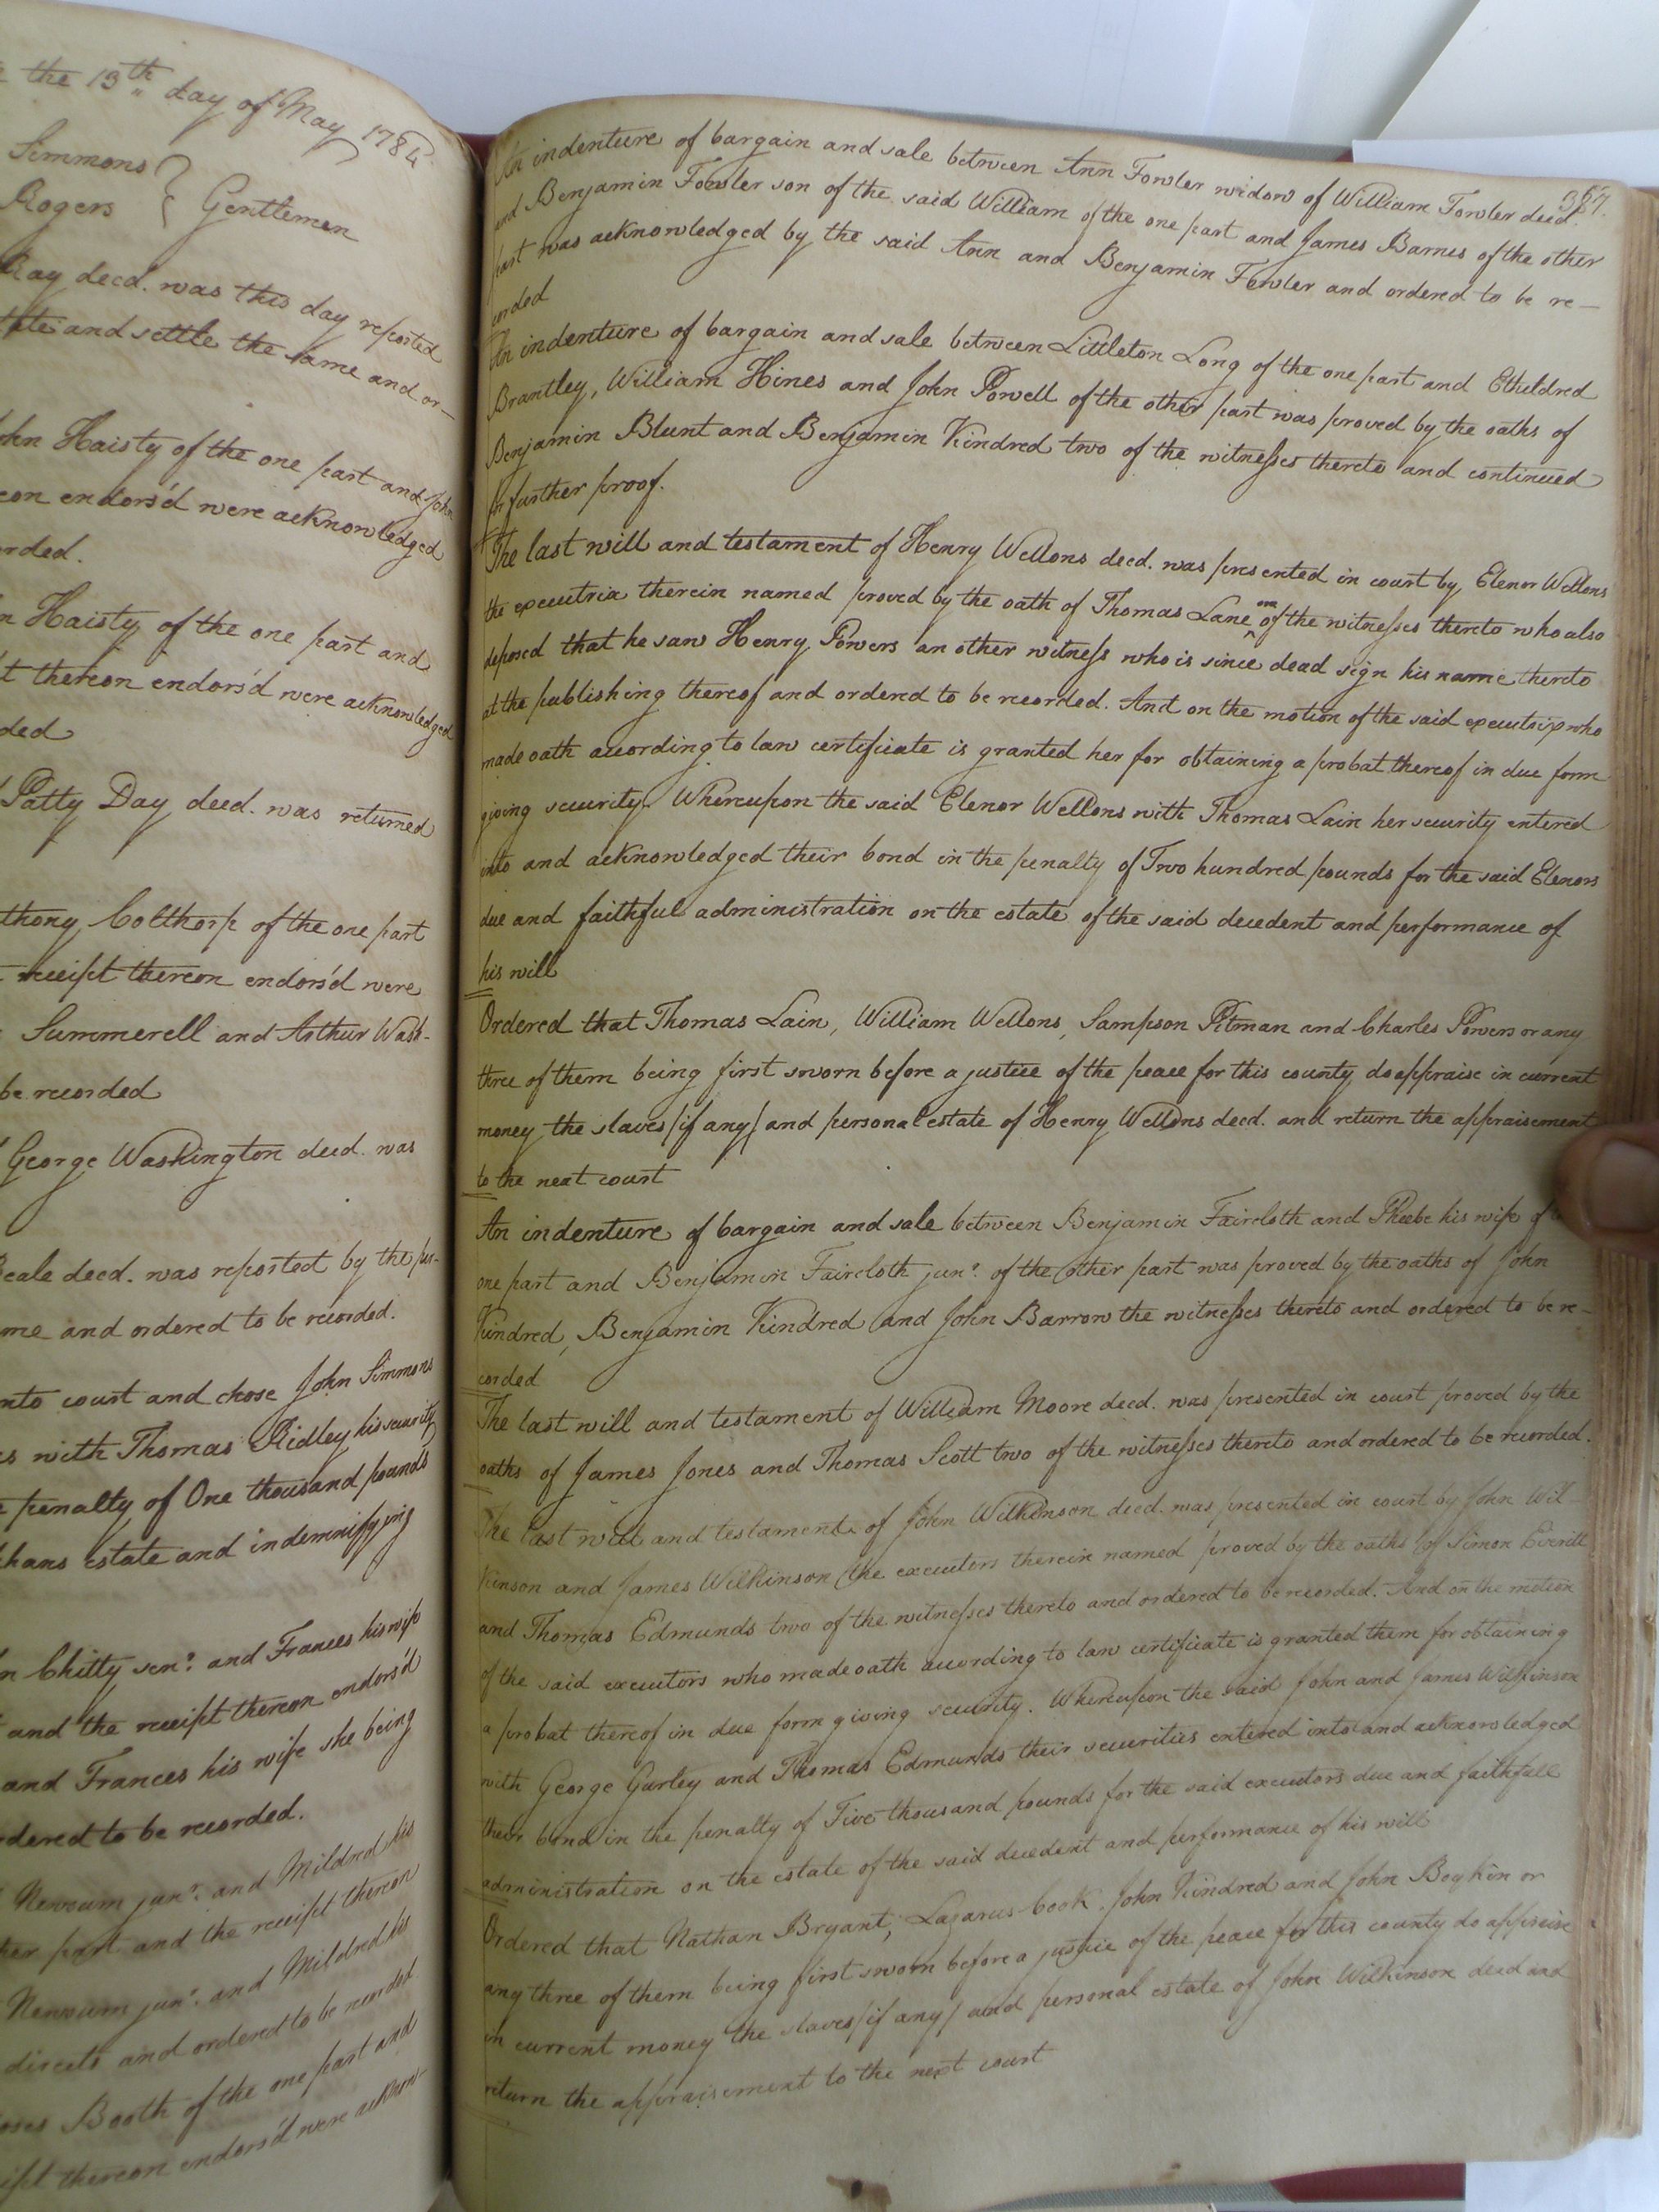 the 13th day of May 1784
Simmons
Rogers } Gentlemen
Ray decd. was this day reported
and settle the same and or-
John Haisty of the one part and John
endors'd were acknowledged
orded.
Haisty of the one part and
thereon endors'd were acknowledged
ded
Patty Day decd. was returned
thony Colthorp of the one part
receipt thereon endors'd were
Summerell and Arthur Wash-
be recorded
George Washington decd. was
Beale decd. was reported by the per-
me and ordered to be recorded.
into court and chose John Simmons
with Thomas Ridley his security
penalty of One thousand pounds
phans estate and indemnifying
Chitty senr. and Frances his wife
and the receipt thereon endors'd
and Frances his wife she being
rdered to be recorded.
Newsum junr. and Mildred his
her part and the receipt thereon
Newsum junr. and Mildred his
directs and ordered to be recorded
oses Booth of the one part and
eipt thereon endors'd were acknow-
387.
An indenture of bargain and sale between Ann Fowler widow of William Fowler decd.
and Benjamin Fowler son of the said William of the one part and James Barnes of the other
part was acknowledged by the said Ann and Benjamin Fowler and ordered to be re-
corded
An indenture of bargain and sale between Littleton Long of the one part and Etheldred
Brantley, William Hines and John Powell of the other part was proved by the oaths of
Benjamin Blunt and Benjamin Kindred two of the witnesses thereto and continued
for further proof.
The last will and testament of Henry Wellons decd. was presented in court by Elenor Wellons
the executrix therein named proved by the oath of Thomas Lane one of the witnesses thereto who also
deposed that he saw Henry Powers an other witness who is since dead sign his name thereto
at the publishing thereof and ordered to be recorded. And on the motion of the said executrix who
made oath according to law certificate is granted her for obtaining a probat thereof in due form
giving security. Whereupon the said Elenor Wellons with Thomas Lain her security entered
into and acknowledged their bond in the penalty of Two hundred pounds for the said Elenors
due and faithful administration on the estate of the said decedent and performance of
his will
Ordered that Thomas Lain, William Wellons, Sampson Pitman and Charles Powers or any
three of them being first sworn before a justice of the peace for this county do appraise in current
money the slaves /if any/ and personal estate of Henry Wellons decd. and return the appraisement
to the next court
An indenture of bargain and sale between Benjamin Faircloth and Phebe his wife of
one part and Benjamin Faircloth junr. of the other part was proved by the oaths of John
Kindred, Benjamin Kindred and John Barrow the witnesses thereto and ordered to be re-
corded
The last will and testament of William Moore decd. was presented in court proved by the
oaths of James Jones and Thomas Scott two of the witnesses thereto and ordered to be recorded.
The last will and testament of John Wilkinson decd. was presented in court by John Wil-
kinson and James Wilkinson the executors therein named proved by the oaths of Simon Everitt
and Thomas Edmunds two of the witnesses thereto and ordered to be recorded. And on the motion
of the said executors who made oath according to law certificate is granted them for obtaining
a probat thereof in due form giving security. Whereupon the said John and James Wilkinson
with George Gurley and Thomas Edmunds their securities entered into and acknowledged
their bond in the penalty of Five thousand pounds for the said executors due and faithfull
administration on the estate of the said decedent and performance of his will
Ordered that Nathan Bryant, Lazarus Cook, John Kindred and John Boykin or
any three of them being first sworn before a justice of the peace for this county do appraise
in current money the slaves /if any/ and personal estate of John Wilkinson decd and
return the appraisement to the next court